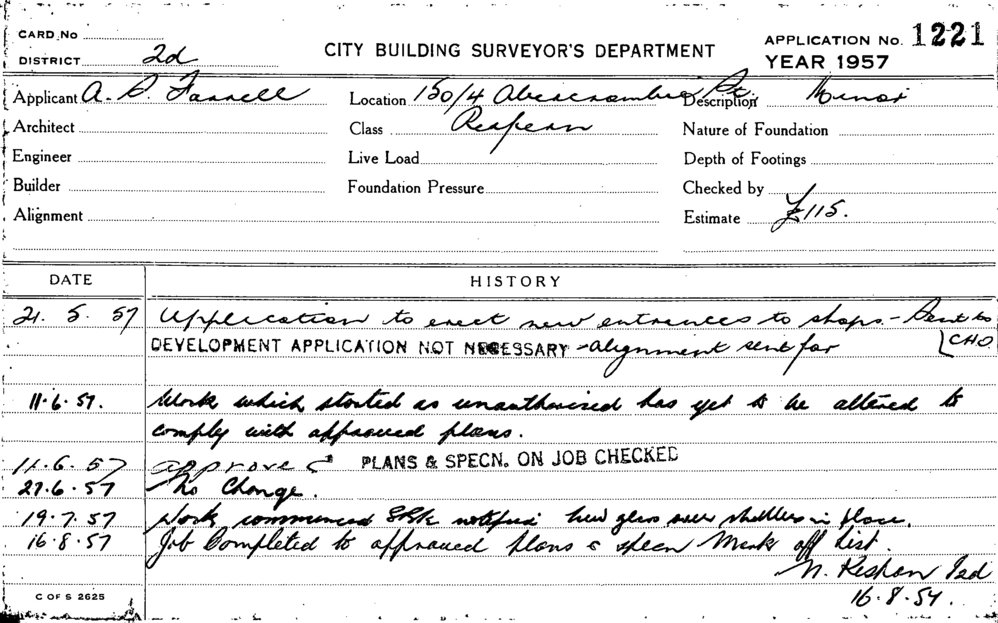 CARD No
APPLICATION No. 1221
CITY BUILDING SURVEYOR'S DEPARTMENT
DISTRICT 2d
YEAR 1957
Applicant A. Farrell Location 150/4 Abercrombie St. Description Minor
Architect Class Nature of Foundation
Engineer Live Load Depth of Footings
Builder Foundation Pressure Checked by
Alignment Estimate £115.
DATE HISTORY
21. 5. 57 Application to erect new entrances to shops - Sent to
DEVELOPMENT APPLICATION NOT NECESSARY - alignment sent for CHO
11.6.57. Work which started as unauthorised has yet to be altered to
comply with approved plans.
11.6.57 approved PLANS & SPECN. ON JOB CHECKED
27.6.57 No Change.
19.7.57 Work commenced notified new glass over shutters in place.
16.8.57 Job Completed to approved plans & specn Mark off list.
16.8.57.
C OF S 2625